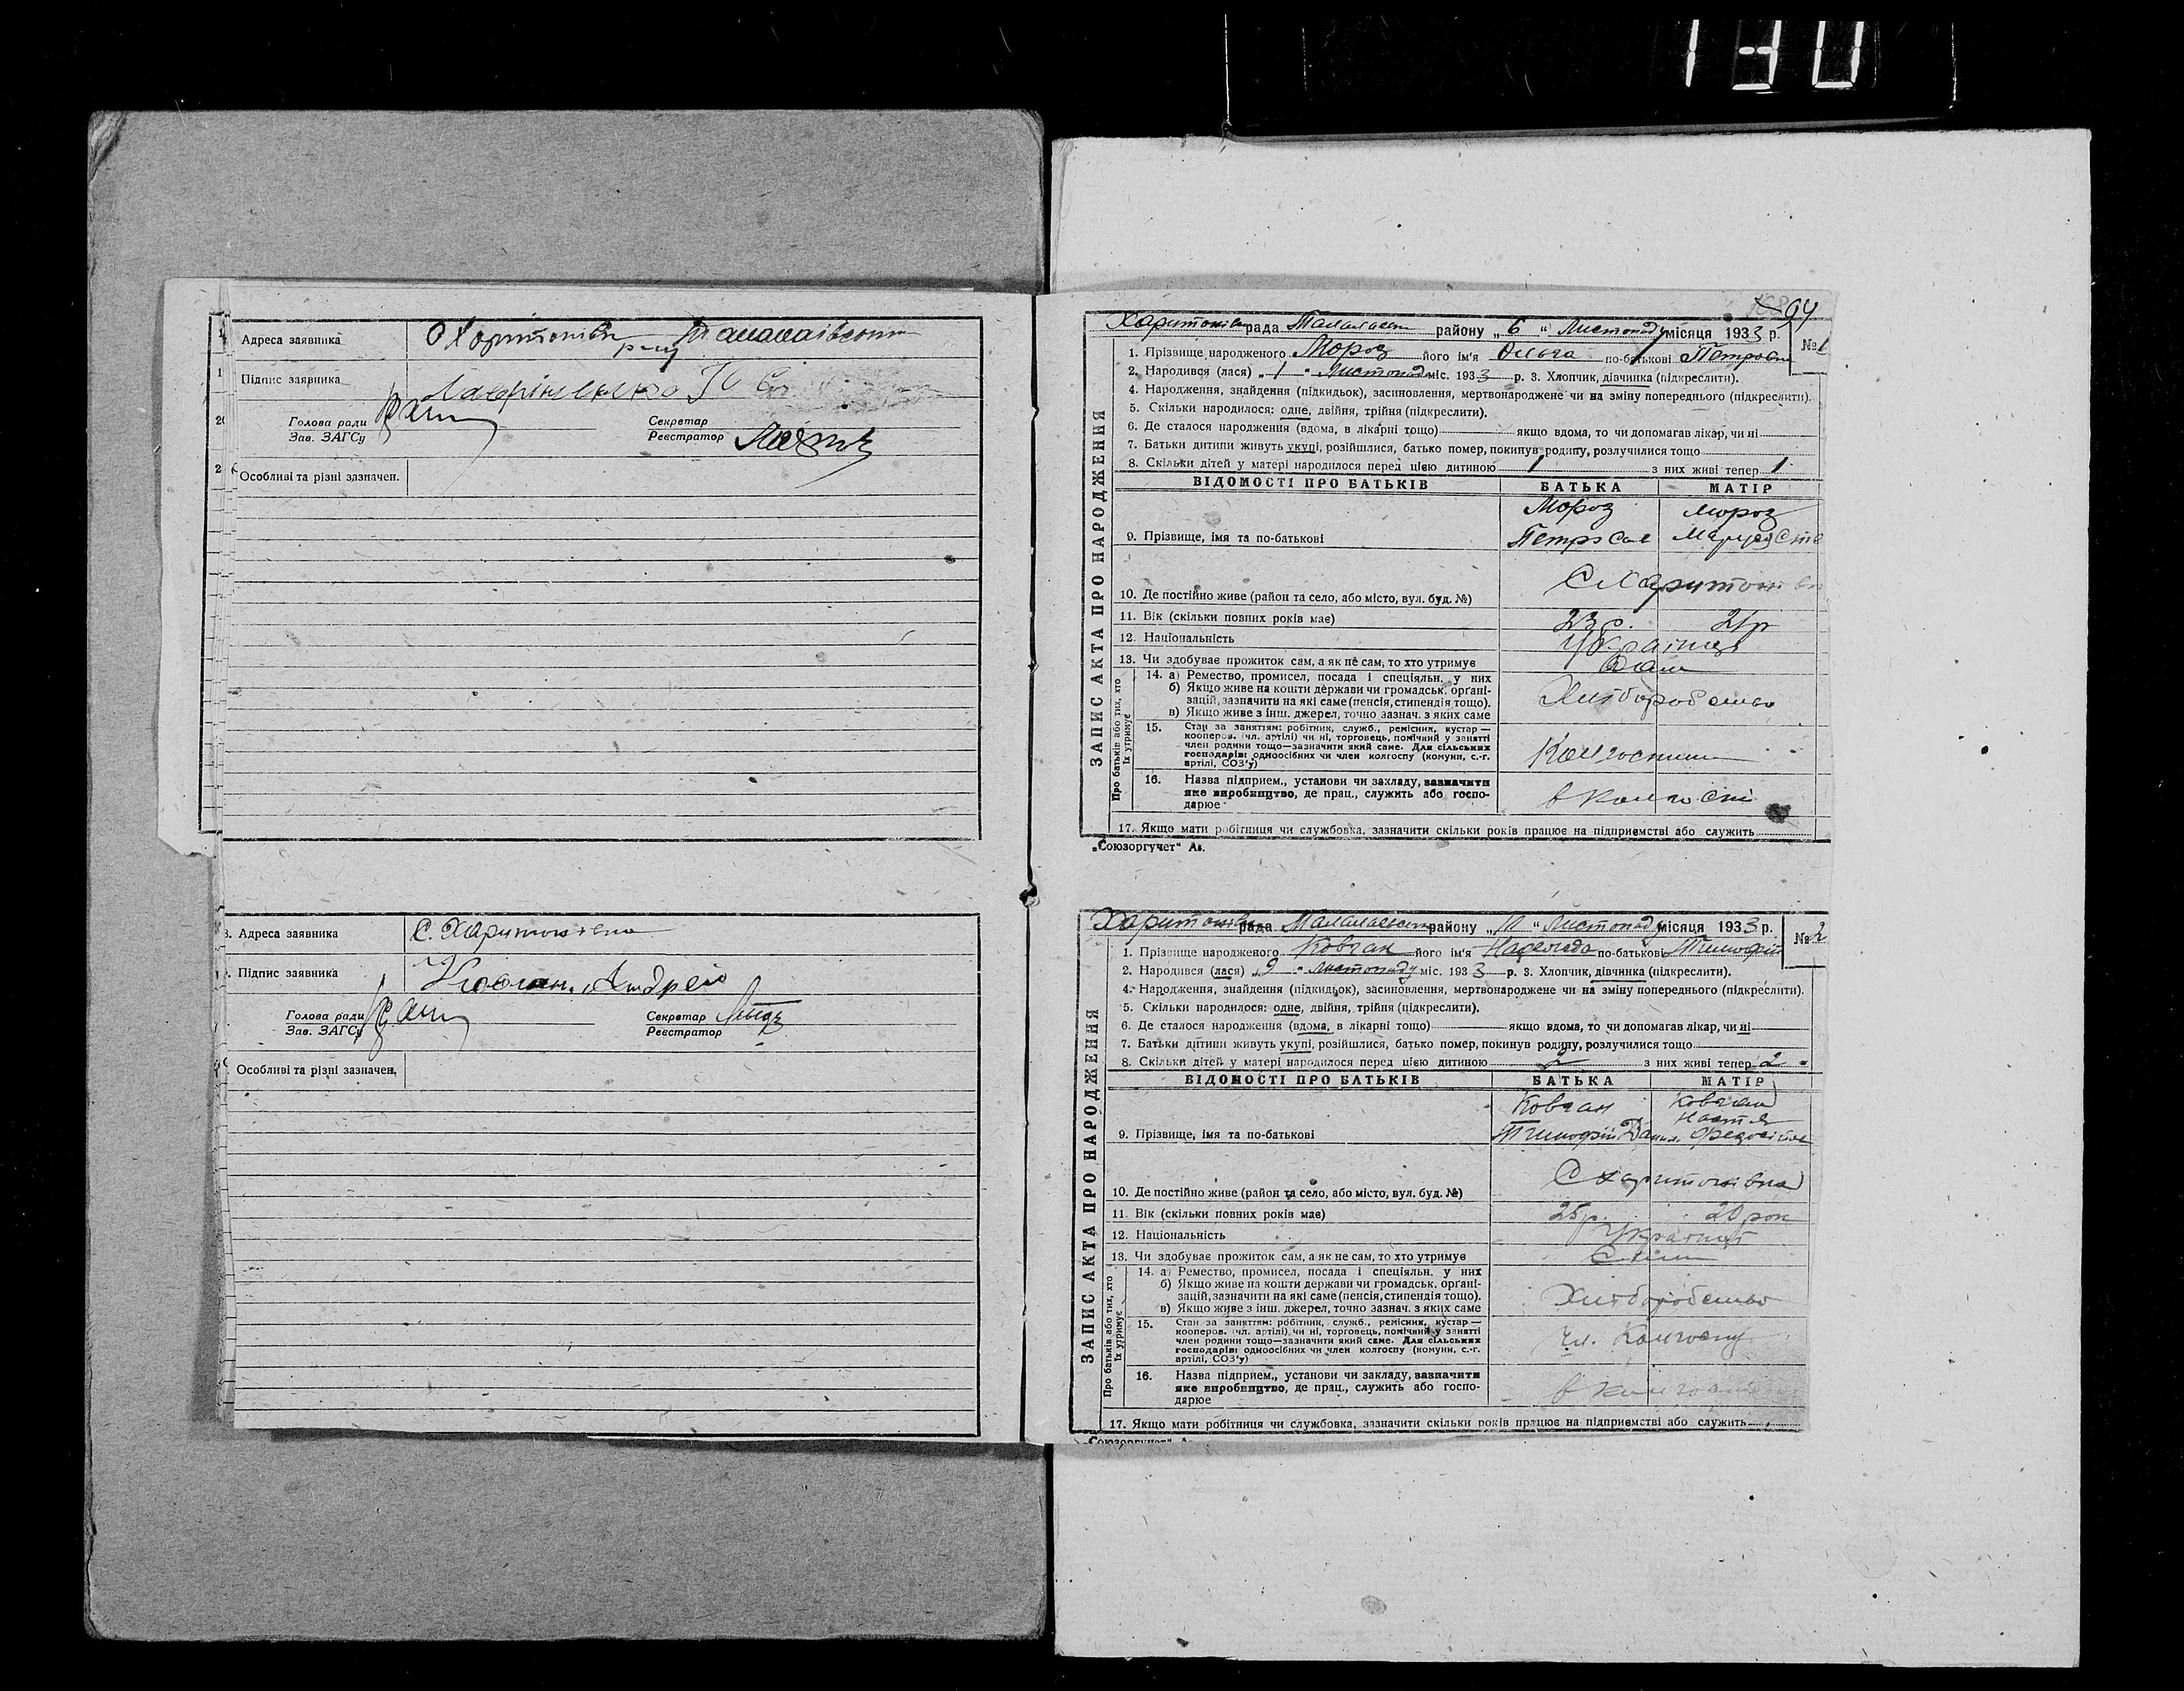 130
Адреса заявника
Підпис заявника
Голова ради
Зав. ЗАГСу
Секретар
Реєстратор
Особливі та різні зазначен.
Адреса заявника С. Харитонівка
Підпис заявника Ковган Андрей
Голова ради
Зав. ЗАГСу
Секретар
Реєстратор
Особливі та різні зазначен.
94
рада району „ 6 “ Листопаду місяця 1933 р.
№ 1
ЗАПИС АКТА ПРО НАРОДЖЕННЯ
1. Прізвище народженого Мороз його ім'я Ольга по-батькові
2. Народився (лася) „ 1 “ Листопад міс. 1933 р. 3. Хлопчик, дівчинка (підкреслити).
4. Народження, знайдення (підкидьок), засиновлення, мертвонароджене чи на зміну попереднього (підкреслити).
5. Скільки народилося: одне, двійня, трійня (підкреслити).
6. Де сталося народження (вдома, в лікарні тощо) якщо вдома, то чи допомагав лікар, чи ні
7. Батьки дитини живуть укупі, розійшлися, батько помер, покинув родину, розлучилися тощо
8. Скільки дітей у матері народилося перед цією дитиною 1 з них живі тепер 1
ВІДОМОСТІ ПРО БАТЬКІВ БАТЬКА МАТІР
Мороз Мороз
9. Прізвище, імя та по-батькові Петро
10. Де постійно живе (район та село, або місто, вул. буд. №)
11. Вік (скільки повних років має) 23 р.
12. Національність
13. Чи здобуває прожиток сам, а як не сам, то хто утримує
Про батьків або тих, хто їх утримує
14. а) Ремество, промисел, посада і спеціяльн. у них
б) Якщо живе на кошти держави чи громадськ. органі-
зацій, зазначити на які саме (пенсія, стипендія тощо).
в) Якщо живе з інш. джерел, точно зазнач. з яких саме
Хліборобство
15. Стан за заняттям: робітник, служб., ремісник, кустар—
кооперов. (чл. артілі) чи ні, торговець, помічний у занятті
член родини тощо—зазначити який саме. Для сільських
господарів: одноосібних чи член колгоспу (комуни, с.-г.
артілі, СОЗ'у)
16. Назва підприєм., установи чи закладу, зазначити
яке виробництво, де прац., служить або госпо-
дарює
в колгоспі
17. Якщо мати робітниця чи службовка, зазначити скільки років працює на підприємстві або служить
„Союзоргучет“
рада району „ “ Листопаду місяця 1933 р.
№ 2
ЗАПИС АКТА ПРО НАРОДЖЕННЯ
1. Прізвище народженого Ковган його ім'я по-батькові
2. Народився (лася) „ 9 “ листопаду міс. 1933 р. 3. Хлопчик, дівчинка (підкреслити).
4. Народження, знайдення (підкидьок), засиновлення, мертвонароджене чи на зміну попереднього (підкреслити).
5. Скільки народилося: одне, двійня, трійня (підкреслити).
6. Де сталося народження (вдома, в лікарні тощо) якщо вдома, то чи допомагав лікар, чи ні
7. Батьки дитини живуть укупі, розійшлися, батько помер, покинув родину, розлучилися тощо
8. Скільки дітей у матері народилося перед цією дитиною 2 з них живі тепер 2
ВІДОМОСТІ ПРО БАТЬКІВ БАТЬКА МАТІР
Ковган Ковган
Настя
9. Прізвище, імя та по-батькові Тимофій
С Харитонівка
10. Де постійно живе (район та село, або місто, вул. буд. №)
11. Вік (скільки повних років має) 25 р. 20 рок
12. Національність
13. Чи здобуває прожиток сам, а як не сам, то хто утримує
Про батьків або тих, хто їх утримує
14. а) Ремество, промисел, посада і спеціяльн. у них
б) Якщо живе на кошти держави чи громадськ. органі-
зацій, зазначити на які саме (пенсія, стипендія тощо).
в) Якщо живе з інш. джерел, точно зазнач. з яких саме
Хліборобство
15. Стан за заняттям: робітник, служб., ремісник, кустар—
кооперов. (чл. артілі) чи ні, торговець, помічний у занятті
член родини тощо—зазначити який саме. Для сільських
господарів: одноосібних чи член колгоспу (комуни, с.-г.
артілі, СОЗ'у)
чл. Колгоспу
16. Назва підприєм., установи чи закладу, зазначити
яке виробництво, де прац., служить або госпо-
дарює
17. Якщо мати робітниця чи службовка, зазначити скільки років працює на підприємстві або служить